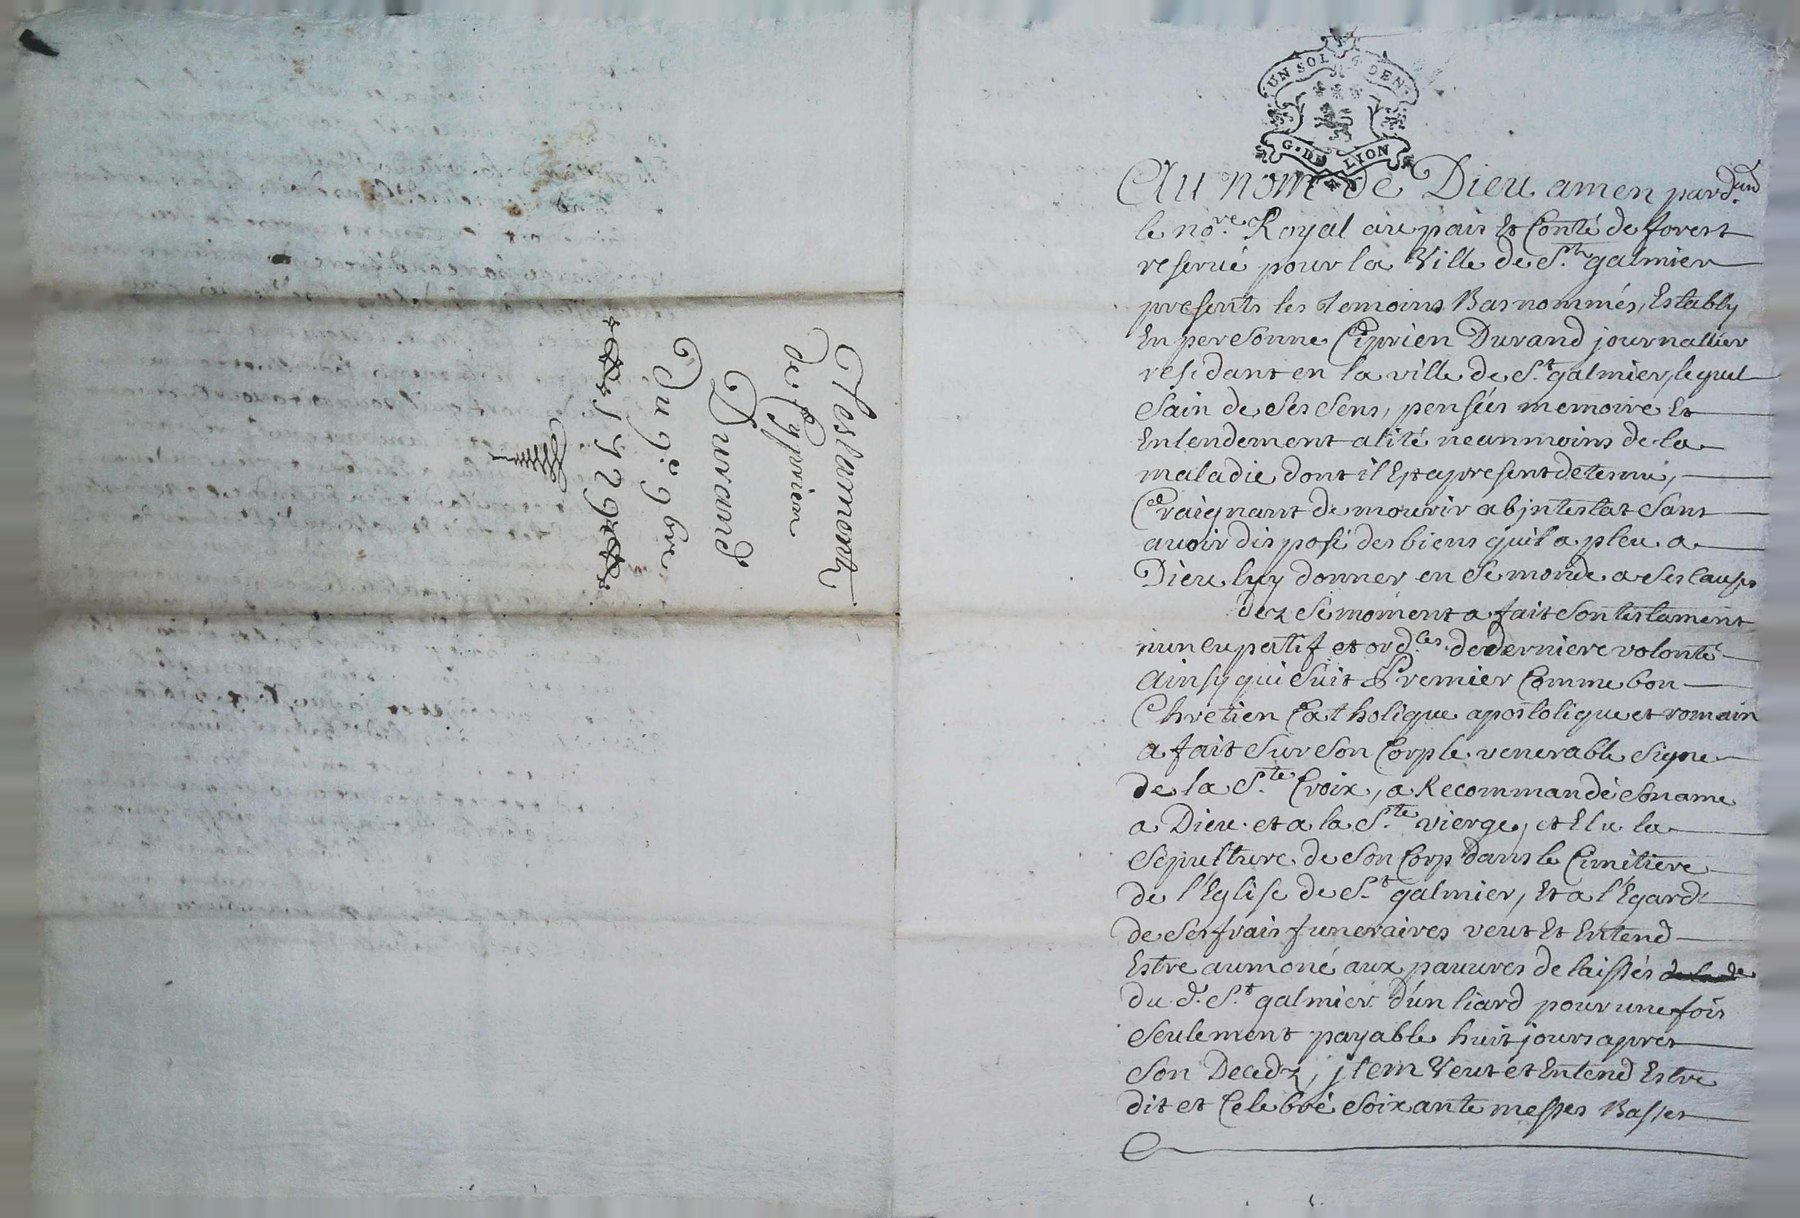 Testament
de Cyprien
Durand
Du 9.e 9bre
1729
UN SOL
DEN.
G. DE LION
Au nom de Dieu amen pard.und
le no.re Royal au pais Et Conté de forest
reserué pour la Ville de S.t galmier
presents les temoins Bas nommés, Estably
En personne Ciprien Durand journallier
residant en la ville de S.t galmier, lequel
Sain de Ses Sens, pensées memoire Et
Entendement alité neanmoins de la
maladie dont il Est apresent detenu,
Craignant de mourir abjntestat Sans
auoir disposé des biens quil a pleu a
Dieu luy donner en Se monde a Ses Causes
dez Se moment a fait Son testament
nuncupatif et ord.ces de derniere volonté
Ainsy qui Suit Premier Comme bon
Chretien Catholique apostolique et romain
a fait Sur Son Corp le venerable Signe
de la S.te Croix, a Recommandé Son ame
a Dieu et a la S.te vierge, et Elu la
Sépulture de Son Corp dans le Cimetiere
de l'Eglise de S.t galmier, Et a l'Egard
de Ses frais funeraires veut Et Entend
Estre aumoné aux pauures de laissés
du d. S.t galmier d'un liard pour une fois
Seulement payable huit jours apres
Son Decedz, jtem Veut et Entend Estre
dit et Celebré Soixante messes Basses